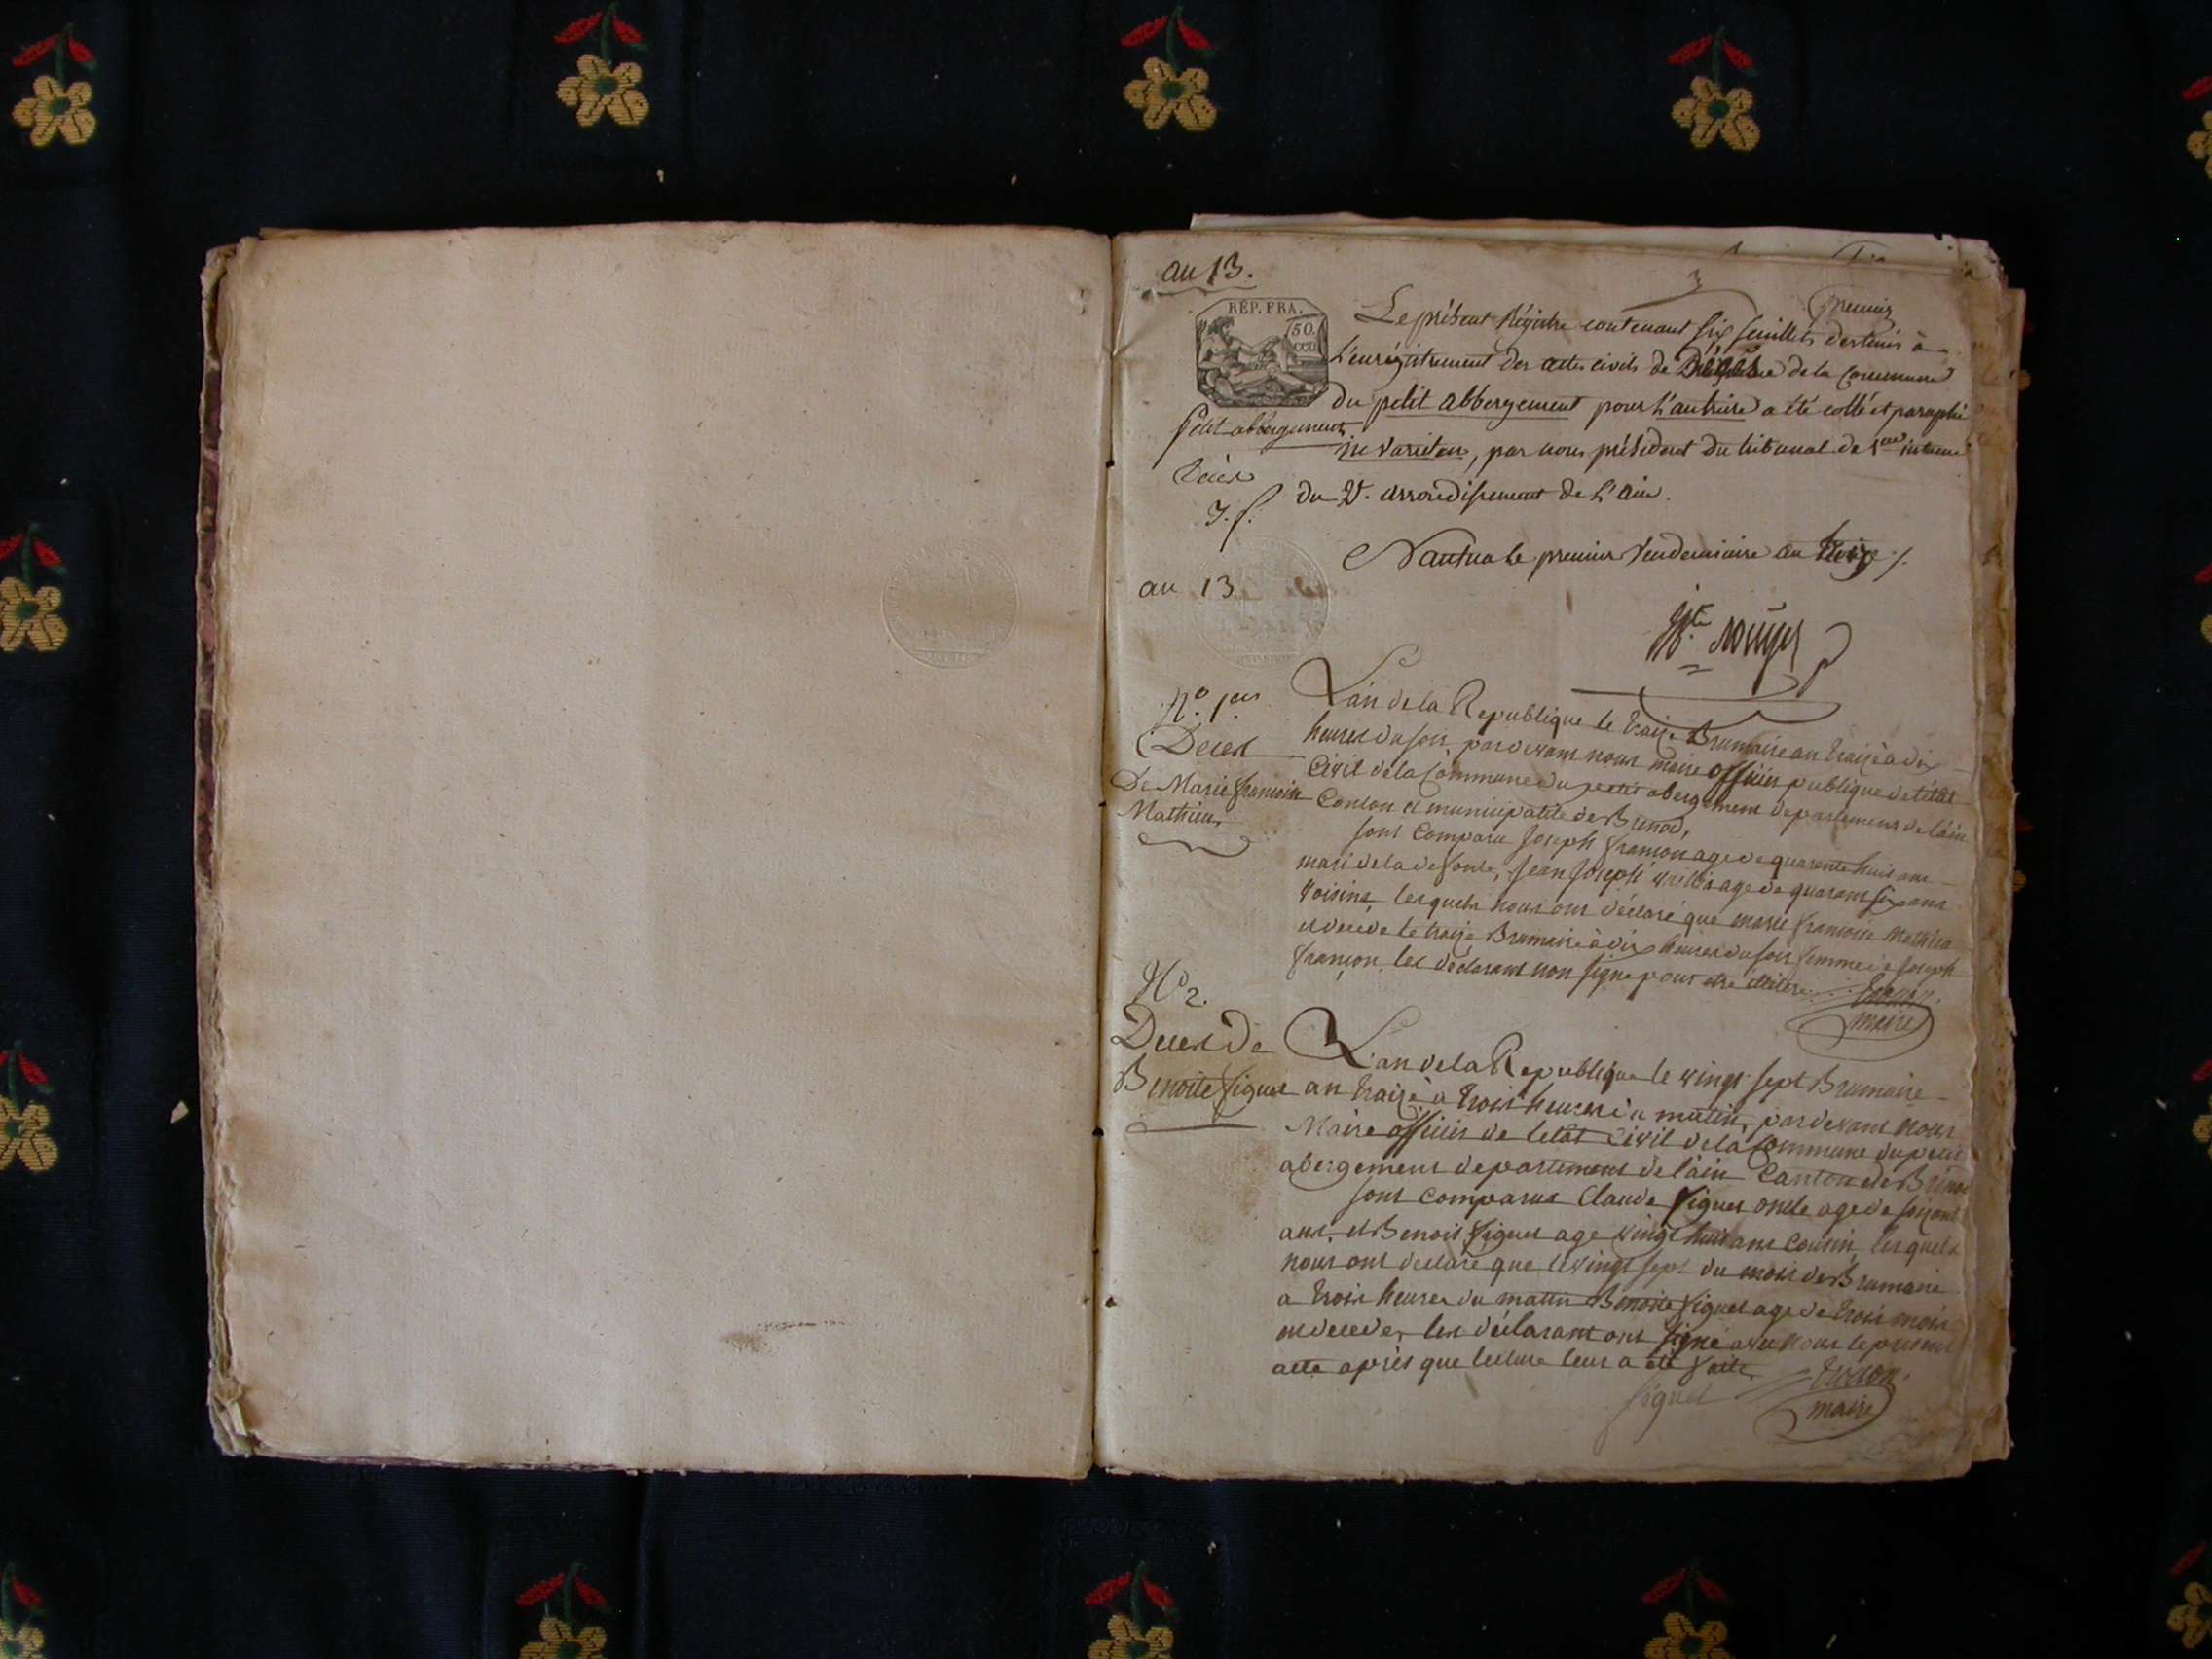 an 13.
REP. FRA.
50.
cen
premier
Le présent Régistre contenant six feuillets destinés à
L'enrégistrement des actes civils de Décès de la Commune
Du petit abbergement pour l'an treize a été cotté et paraphé
ne varietur, par nous président du tribunal de 1ere instance
du 2e. arrondissement de L'ain.
petit abbergement
Décès
an 13
Nantua le premier Vendemiaire an treize /.
N.o 1er
Deces
De Marie francoise
Mathieu
L'an de la Republique le traize Brumaire an traize à dix
heures du soir, pardevant nous maire officier publique de l'état
Civil de la Commune du petit abergement departement de l'ain
Canton et municipalité de Brenod,
sont Comparu Joseph françon age de quarente huit ans
mari de la defonte, Jean Joseph age de quarant six ans
Voisins, lesquels nous ont déclaré que marie francoise Mathieu
et decede le traize Brumaire à dix heures du soir femme de Joseph
françon, les déclarant non signe pour etre illitere
maire
No 2.
Deces De
Benoite figuet
L'an de la Republique le vingt sept Brumaire
an traize à trois heures du matin, pardevant nous
Maire officier de l'etat Civil de la Commune du petit
abergement departement de l'ain Canton de Brenod
sont comparus Claude figuet oncle age de soixant
ans, et Benoit figuet age vingt huit ans Cousin, lesquels
nous ont declaré que le vingt sept du mois de Brumaire
a trois heures du matin Benoite figuet age de trois mois
et decede, les déclarant ont signé avec nous le present
acte après que lecture leur a été faite
figuet
maire